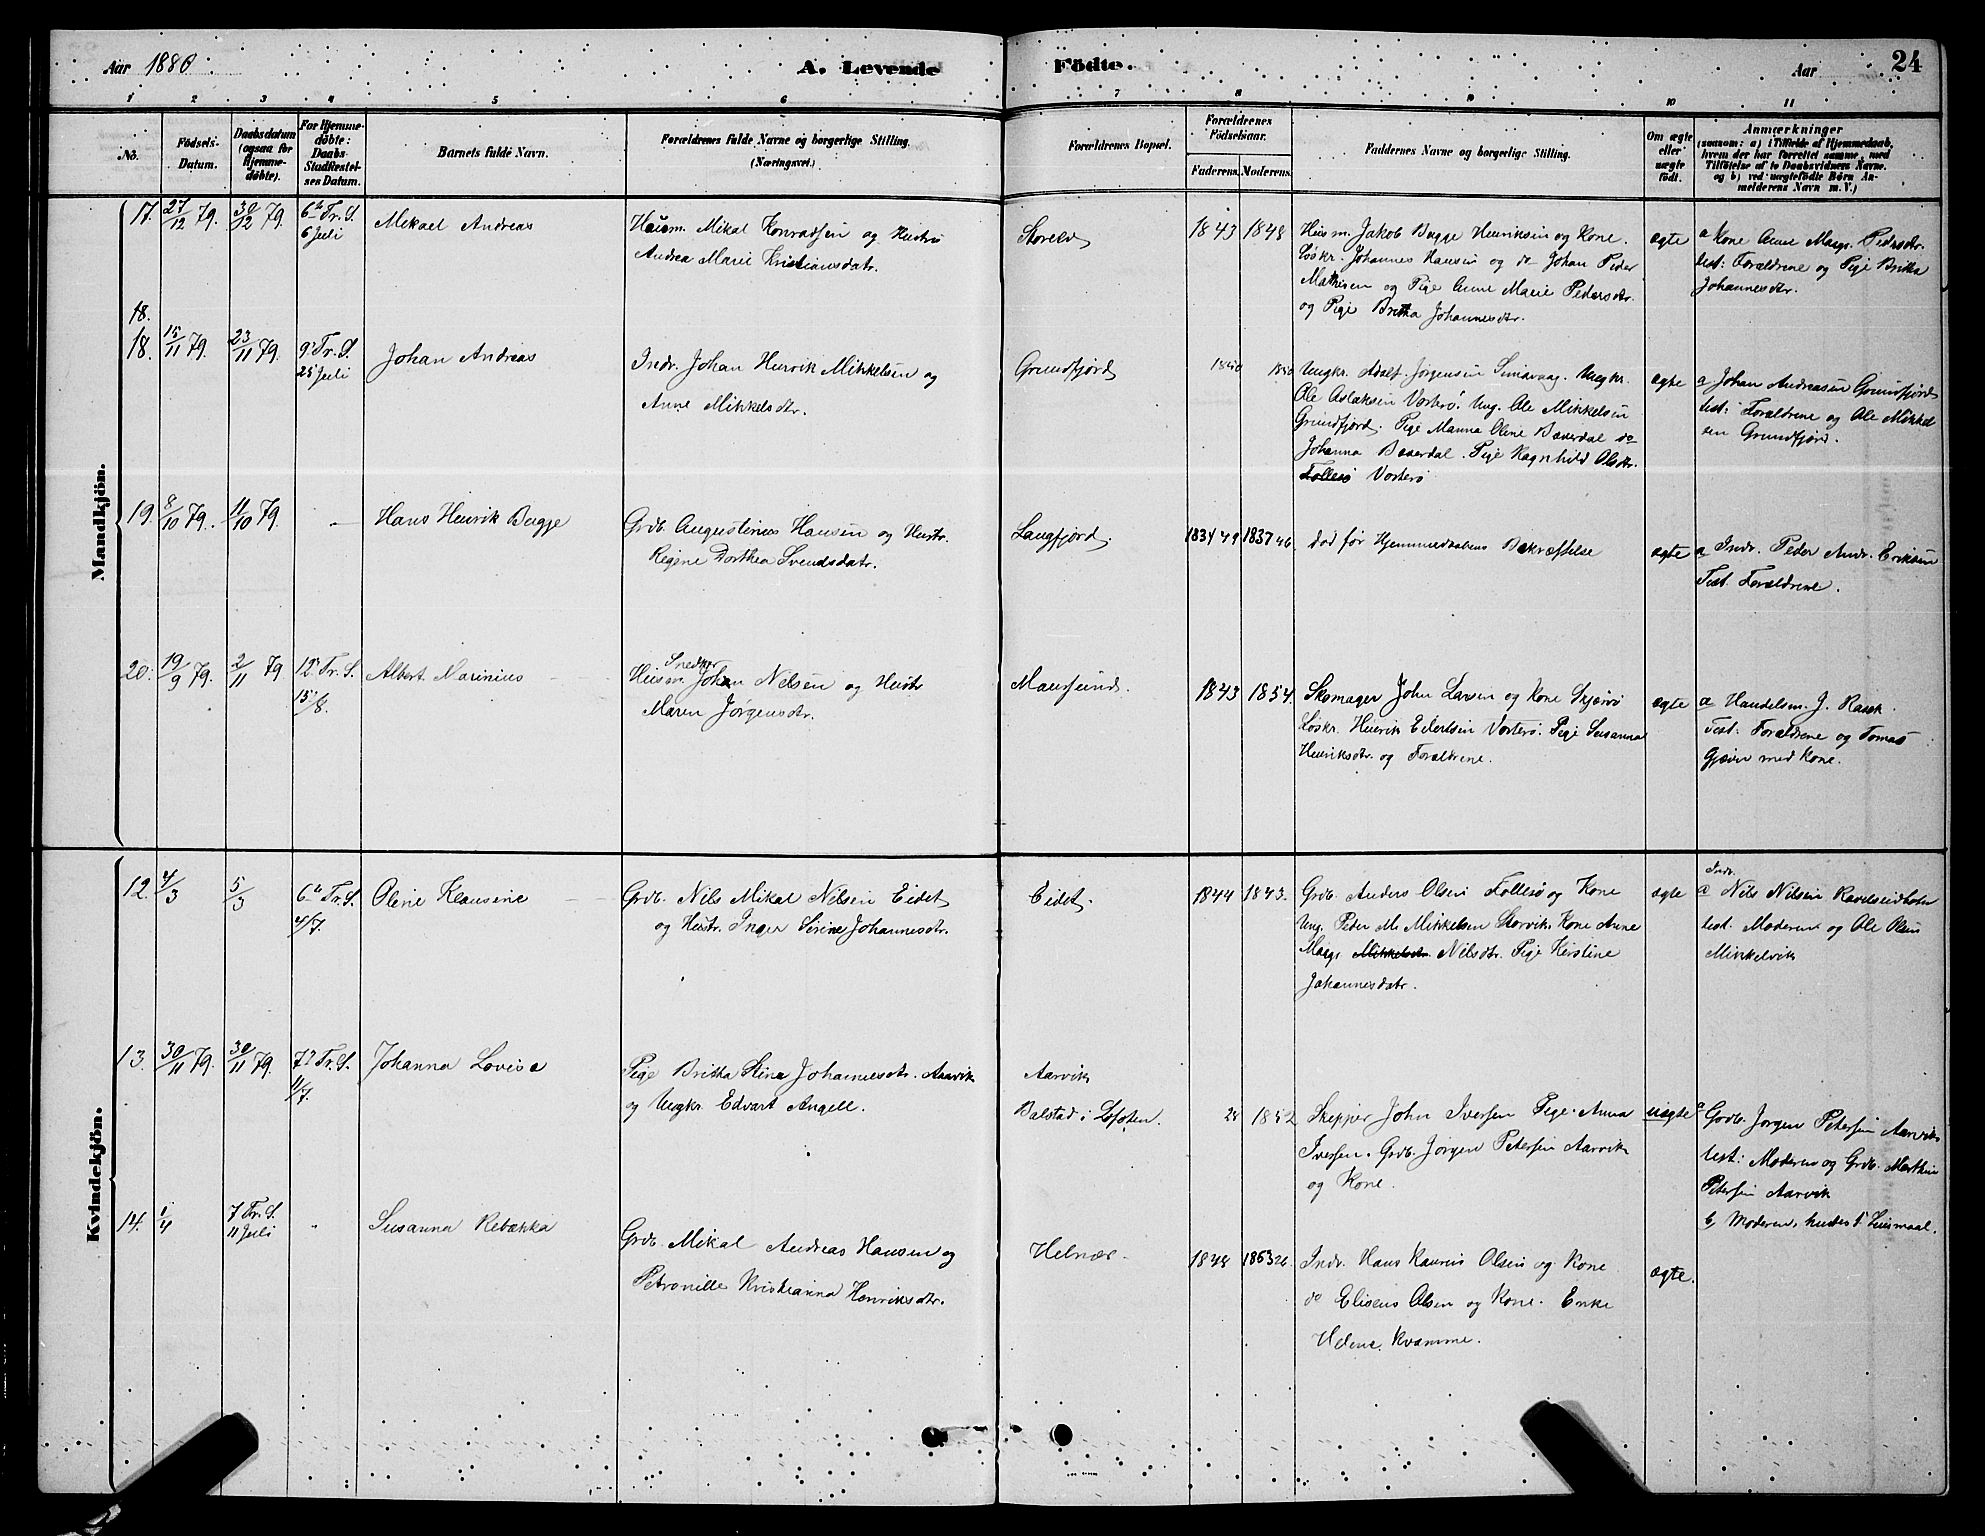 Aar 1880. A. Levende Födte. Aar 24
1 2 3 4 5 6 7 8 9 10 11
No. Födsels-Datum. Daabsdatum (ogsaa for Hjemmedöbte). For Hjemmedöbte: Daabs-Stadfæstelses Datum. Barnets fulde Navn. Forældrenes fulde Navne og borgerlige Stilling. (Næringsvei.) Forældrenes Bopæl. Forældrenes Födselsaar. Faderens. Moderens. Faddernes Navne og borgerlige Stilling. Om ægte eller uægte födt. Anmærkninger (saasom: a) i Tilfælde af Hjemmedaab, hvem der har forrettet samme, med Tilföielse af to Daabsvidners Navne, og b) ved uægtefödte Börn Anmelderens Navn m. V.)
Mandkjön.
17. 27/12 79. 30/12 79. 6te Tr. S. 6 Juli
Mikael Andreas
Husm. Mikal Konradsen og Hustru
Andrea Marie Kristiansdatr.
1843 1848
Husm. Jakob Bugge Henriksen og Kone.
Løskr. Johannes Hansen og do Johan Peder
Mathisen og Pige Anne Marie Pedersdtr.
og Pige Britha Johannesdtr.
ægte
a Kone Anne Margr. Pedersdtr.
test: Forældrene og Pige Britha
Johannesdtr.
18.
18. 15/11 79. 23/11 79. 9. Tr. S. 25 Juli
Johan Andreas
Indr. Johan Henrik Mikkelsen og
Anne Mikkelsdtr.
Grundfjord
1850 1850
Ungkr. Adolf Jørgensen Ungkr.
Ole Aslaksen Vorterø. Ung. Ole Mikkelsen
Grundfjord. Pige Manna Oline Bæverdal do
Johanna Bæverdal. Pige Ragnhild Olsdtr.
Follesø Vorterø
ægte
a Johan Andreasen Grundfjord
test: Forældrene og Ole Mikkel
sen Grundfjord.
19. 8/10 79. 11/10 79. -
Hans Henrik Bugge
Grdb. Augustinus Hansen og Hustr.
Regine Dorthea Svendsdatr.
Langfjord.
1831 49 1837 46.
død før Hjemmedaabens Bekræftelse
ægte
a Indr. Peder Andr. Eriksen
Test. Forældrene.
20. 19/9 79. 2/11 79 12te Tr. S. 15/8.
Albert Marinius
Snedker
Husm. Johan Nelsen og Hustr
Maren Jørgensdtr.
Maursund.
1843 1854.
Skomager John Larsen og Kone Skjærvø
Løskr. Henrik Edvardsen Vorterø. Pige Susanna
Henriksdtr. og Forældrene.
ægte
a Handelsm. J. Rask
Test: Forældrene og Tomas
Gjæver med Kone.
Kvindekjön.
12. 4/3 5/3 6te Tr. S. 4/7.
Oline Klausine
Grdb. Nils Mikal Nilsen Eidet
og Hustr. Inger Serine Johannesdtr.
Eidet.
1844 1843.
Grdb. Anders Olsen Follesø og Kone
Ung. Peder M. Mikkelsen Storvik. Kone Anne
Margr. Mikkelsdtr. Nilsdtr. Pige Kirstine
Johannesdatr.
ægte
Indr.
a Nils Nilsen Ravelseidbotn
test. Moderen og Ole Olsen
Mikkelvik
13. 30/11 79. 30/11 79. 7de Tr. S. 11/7.
Johanna Lovise
Pige Britha Stina Johannesdtr. Aarvik
og Ungkr. Edvart Angell.
Aarvik
Balstad i Lofoten.
28 1852
Skipper John Iversen Pige Anna
Iversen. Grdb. Jørgen Petersen Aarvik
og Kone.
uægte
a Grdb. Jørgen Petersen Aarvik
test: Moderen og Grdb. Marthin
Petersen Aarvik
b, Moderen, hendes 1te Leiermaal.
14. 1/4 7 Tr. S. 11 Juli "
Susanna Rebekka
Grdb. Mikal Andreas Hansen og
Petronille Kristianna Henriksdtr.
Helnæs.
1848 1853 26.
Indr. Hans Laurits Olsen og Kone
do Eliseus Olsen og Kone. Enke
Helene Kvamme.
ægte.